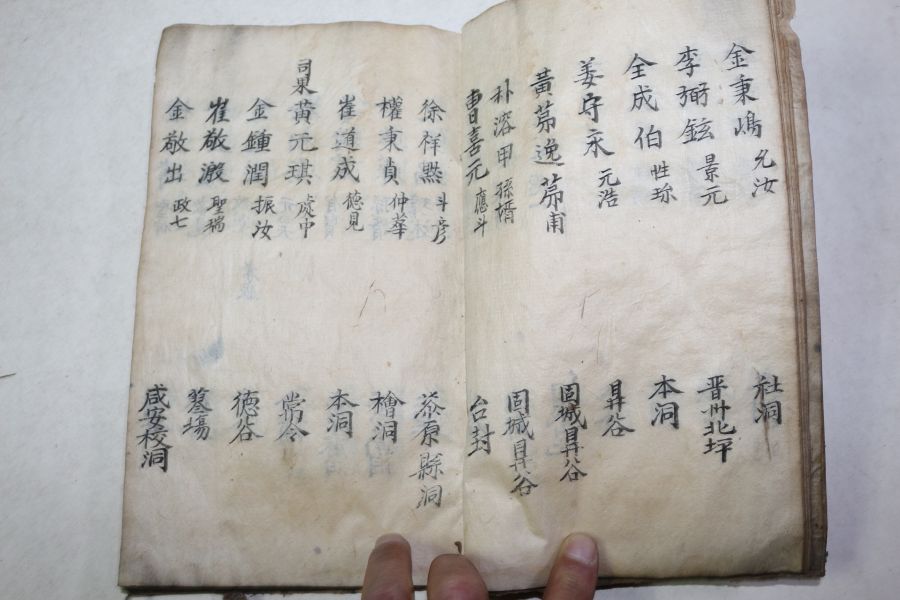 金秉嶋 允汝 社洞
李弼鉉 景元 晋州北坪
全成伯 性珎 本洞
姜守永 元浩 昇谷
黃苐逸 苐甫 固城昇谷
朴溶甲 孫壻 固城昇谷
曺喜元 應斗 台封
徐祥㸃 斗彦 原縣洞
權秉貞 仲華 檜洞
崔道成 德見 本洞
司果 黃元琪 處中 常令
金鍾潤 振汝 德谷
崔敬瀫 聖瑞 墓塲
金敬出 政七 咸安校洞